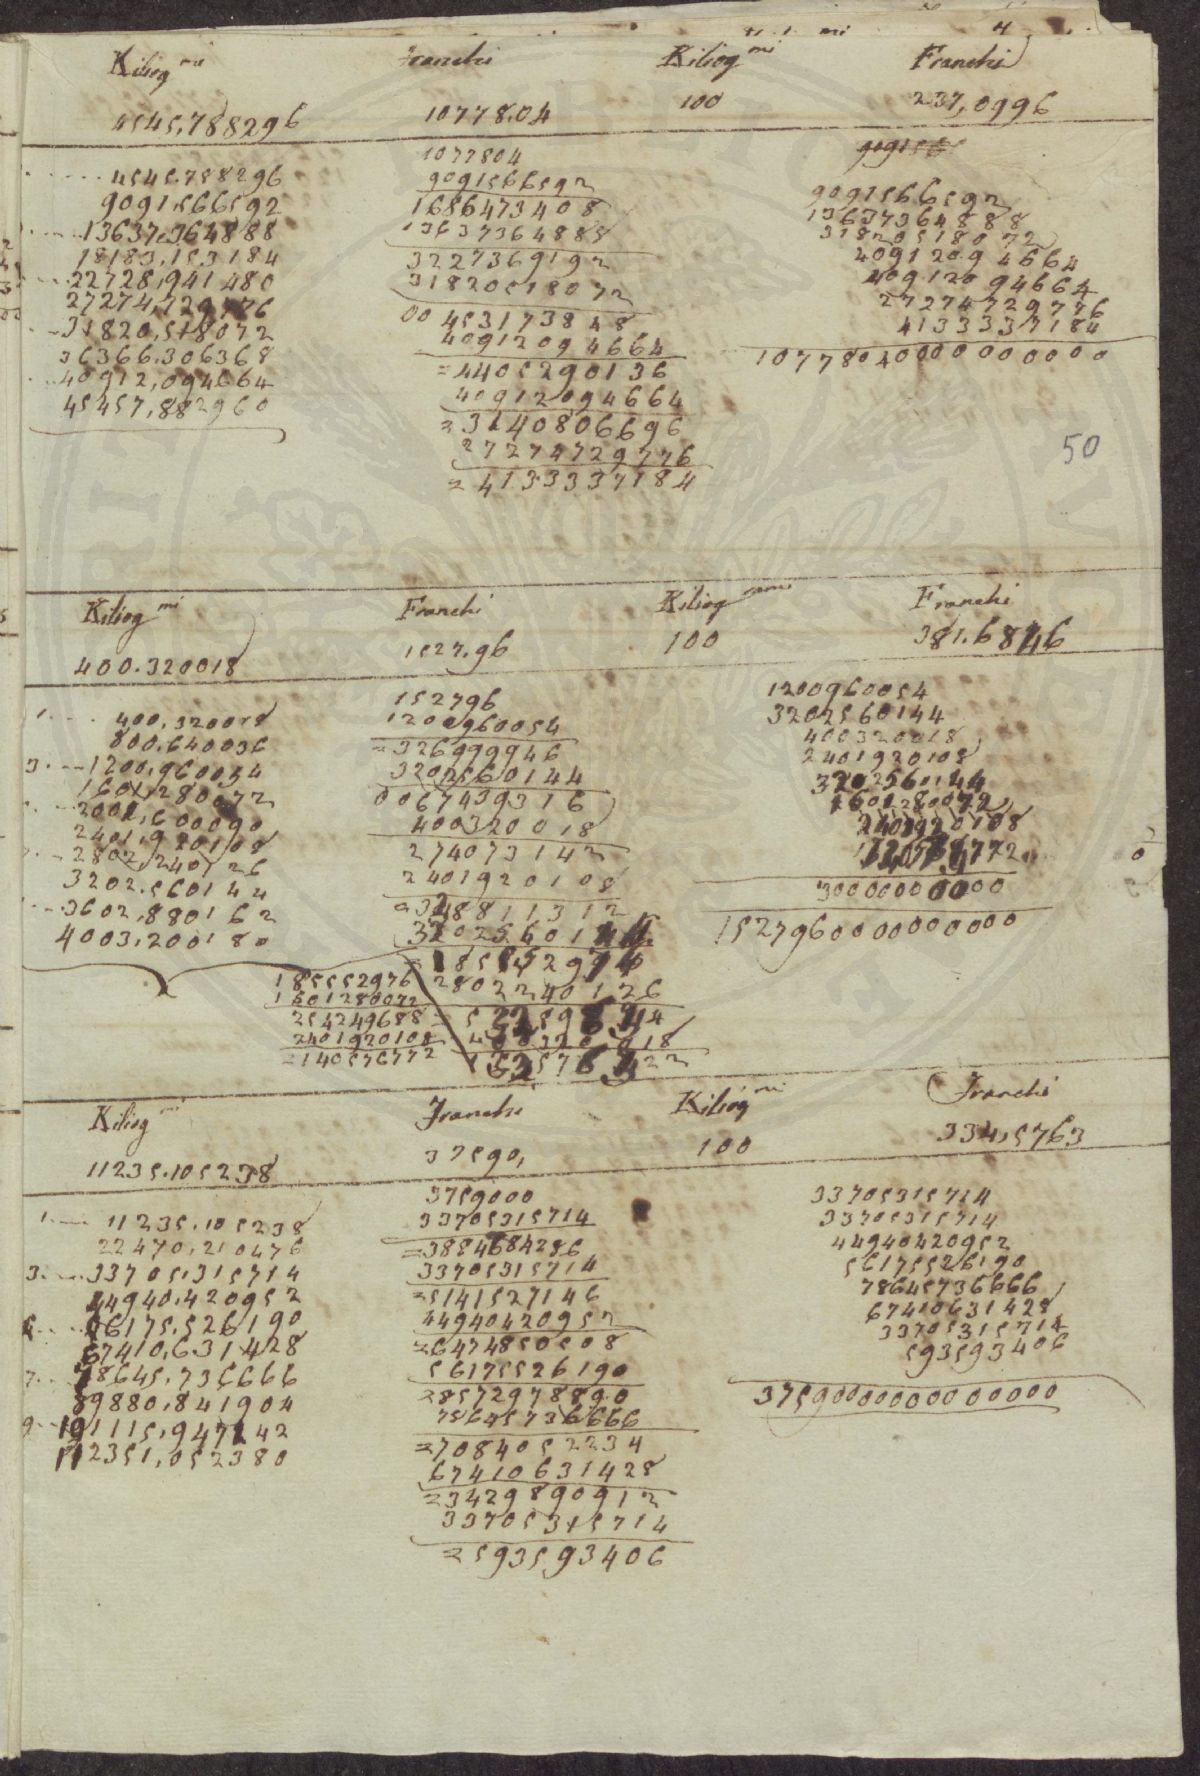 Kiliog mi Franchi Kiliog mi Franchi
4545,788296 10778.04 100 237,0996
4545.788296
9091,566592
13637,364888
18183,153184
22728,941480
27274,729776
31820,518072
36366,306368
40912,094664
45457,882960
1077804
9091566592
1686473408
13637364888
3227369192
31820518072
00 4531738 48
40912094664
=4405290136
40912094664
=3140806696
27274729776
=4133337184
9091566592
13637364888
31820518072
40912094664
40912094664
27274729776
4133337184
10778040000000000
50
Kiliog mi Franchi Kiliog mmi Franchi
400.320018 1527.96 100 381.6846
1.... 400,320018
800,640036
3....1200,960054
1601,280072
2001,600090
2401,920108
2802,240126
3202.560144
3602,880162
4003,200180
152796
1200960054
=326999946
3202560144
0067439316
400320018
274073142
2401920108
=348811312
3202560144
2802240126
185552976
1601280072
254249688
2401920108
=140576772
1200960054
3202560144
400320018
2401920108
3202560144
1601280072
2401920108
3000000 0000
15279600000000000
Kiliog mi Franchi Kiliog mi Franchi
11235.105238 37590, 100 334,5763
1.... 11235,105238
22470,210476
3....33705,315714
44940,420952
56175,526190
67410,631428
7...78645,736666
89880,841904
9...101115,947142
112351,052380
3759000
33705315714
=3884684286
33705315714
=5141527146
44940420952
=6474850508
56175526190
=8572978890
78645736666
=7084052234
67410631428
=2342989091 2
33705315714
=593593406
33705315714
33705315714
44940420952
56175526190
78645736666
67410631428
33705315714
593593406
3759000000000 00000